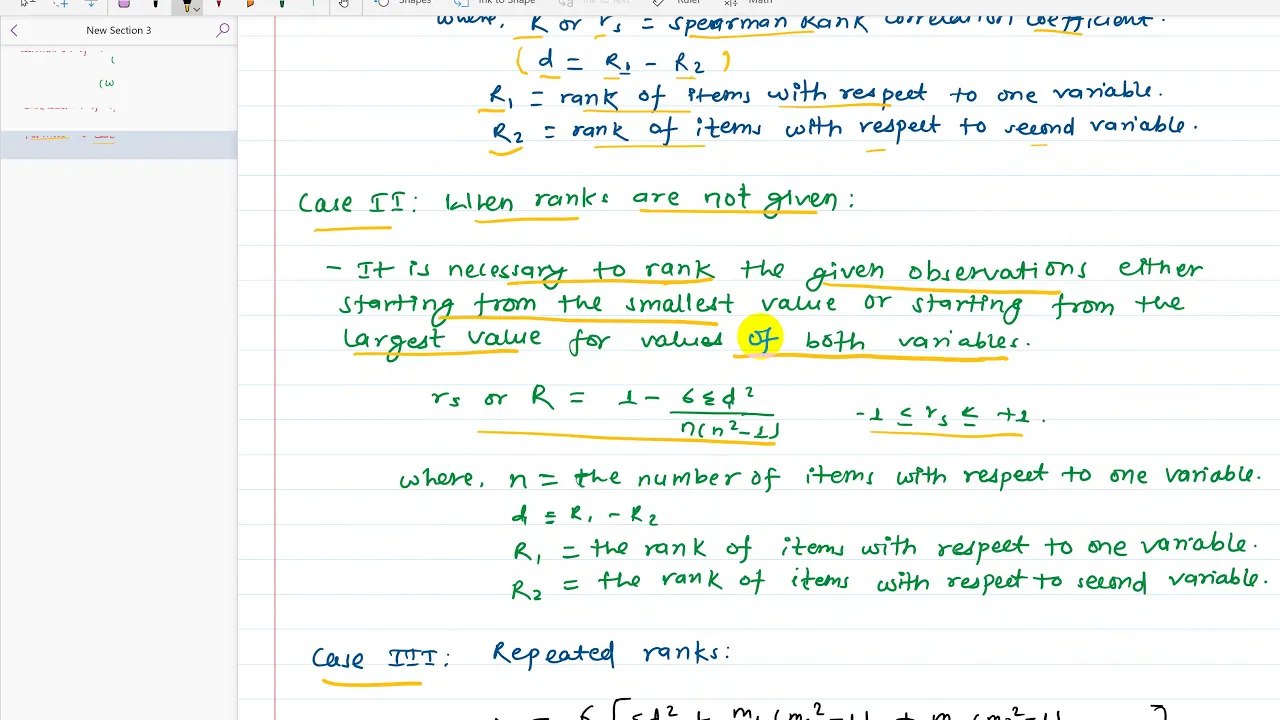 Shapes Ink to Shape Ruler Math
New Section 3
where, R or rs = Spearman Rank correlation coefficient.
( d = R1 - R2 )
R1 = rank of items with respect to one variable.
R2 = rank of items with respect to second variable.
Case II: When ranks are not given:
- It is necessary to rank the given observations either
starting from the smallest value or starting from the
largest value for values of both variables.
rs or R = 1 - 6Σd² / n(n²-1)   -1 ≤ rs ≤ +1.
where, n = the number of items with respect to one variable.
d = R1 - R2
R1 = the rank of items with respect to one variable.
R2 = the rank of items with respect to second variable.
Case III: Repeated ranks: